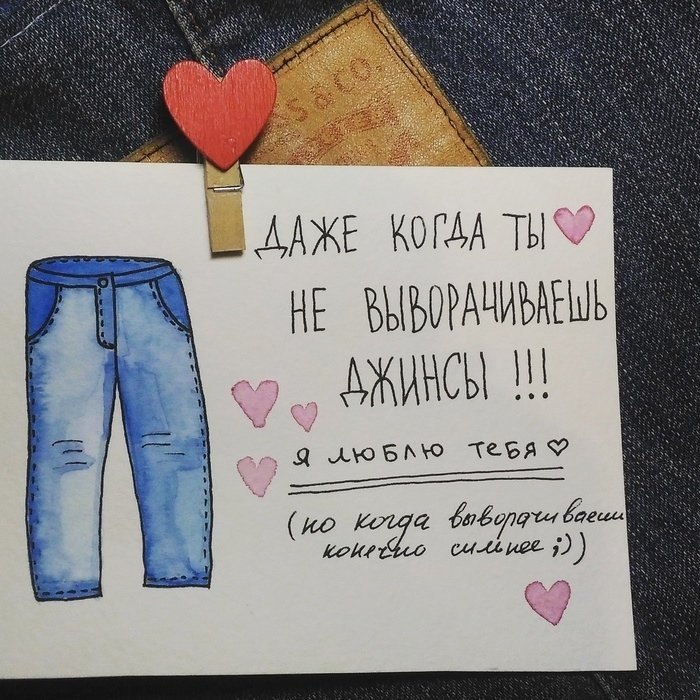 S & CO.
ДАЖЕ КОГДА ТЫ
НЕ ВЫВОРАЧИВАЕШЬ
ДЖИНСЫ !!!
Я ЛЮБЛЮ ТЕБЯ
(но когда выворачиваеш
конечно сильнее ;))